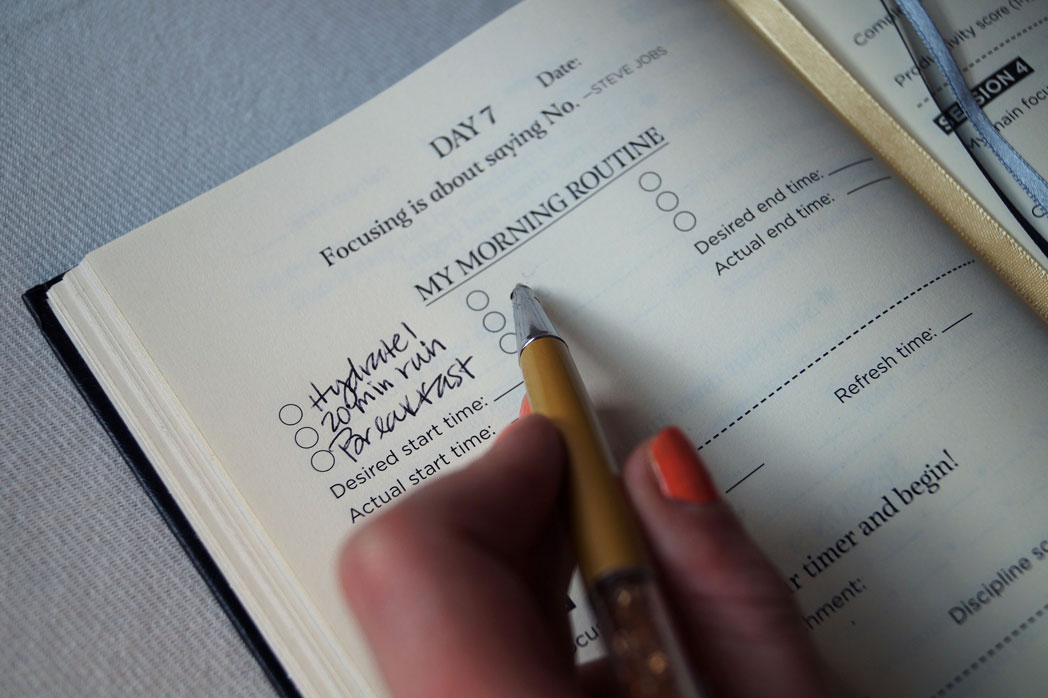 DAY 7
Date:
Focusing is about saying No. —STEVE JOBS
MY MORNING ROUTINE
Hydrate!
20 min run
Breakfast
Desired start time:
Actual start time:
Desired end time:
Actual end time:
Refresh time:
timer and begin!
Discipline
SESSION 4